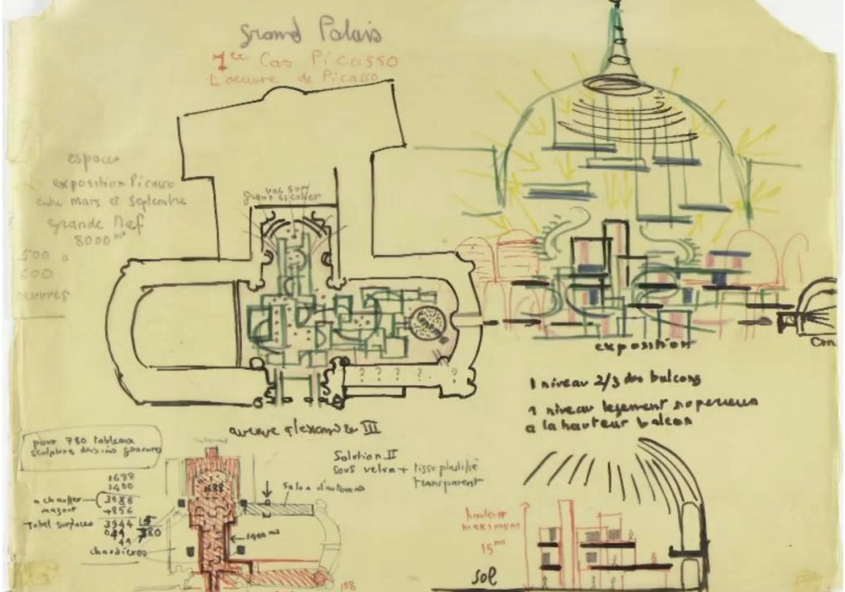 Grand Palais
1er Cas Picasso
L'oeuvre de Picasso
espaces
exposition Picasso
entre Mars et Septembre
Grande Nef
8000 m²
500 à
oeuvres
exposition
1 niveau 2/3 des balcons
1 niveau legement superieur
a la hauteur balcon
avenue Alexandre III
pour 780 tableaux
sculptures dessins gravures
1688
1400
a chauffer
3088
mazout
+856
Total surfaces
3944
chaudières
1688
1400 m²
Solution II
sous velum + tissu plastifié
transparent
Salon d'automne
hauteur
maximum
15 m
sol